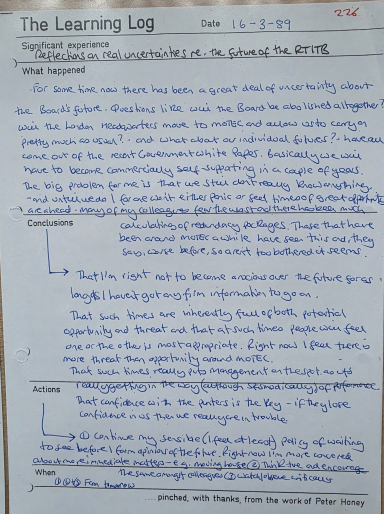 226
The Learning Log Date 16-3-89
Significant experience
Reflections on real uncertainties re. the future of the RTITB
What happened
For some time now there has been a great deal of uncertainty about
the Board's future. Questions like will the Board be abolished altogether?
will the London Headquarters move to MOTEC and allow us to carry on
pretty much as usual? - and what about our individual futures? - have all
come out of the recent Government White Paper. Basically we will
have to become commercially self-supporting in a couple of years.
The big problem for me is that we still don't really know anything.
- and until we do I for one can't either panic or see times of great opportunity
are ahead - many of my colleagues fear the worst and there has been much
calculating of redundancy packages. Those that have
been around MOTEC a while have seen this and, they
say, worse before, so aren't too bothered it seems.
Conclusions
That I'm right not to become anxious over the future for as
long as I haven't got any firm information to go on.
That such times are inherently full of both potential
opportunity and threat and that at such times people will feel
one or the other is most appropriate. Right now I feel there is
more threat than opportunity around MOTEC.
That such times really put management on the spot as to
really getting in the way (although spasmodically) of performance
That confidence with the punters is the key - if they lose
confidence in us then we really are in trouble.
Actions
① Continue my sensible (I feel at least) policy of waiting
to see before I form opinions of the future. Right now I'm more concerned
about more immediate matters - e.g. moving house ② Think and encourage
the same amongst colleagues ③ Watch critically
When
From tomorrow
.... pinched, with thanks, from the work of Peter Honey